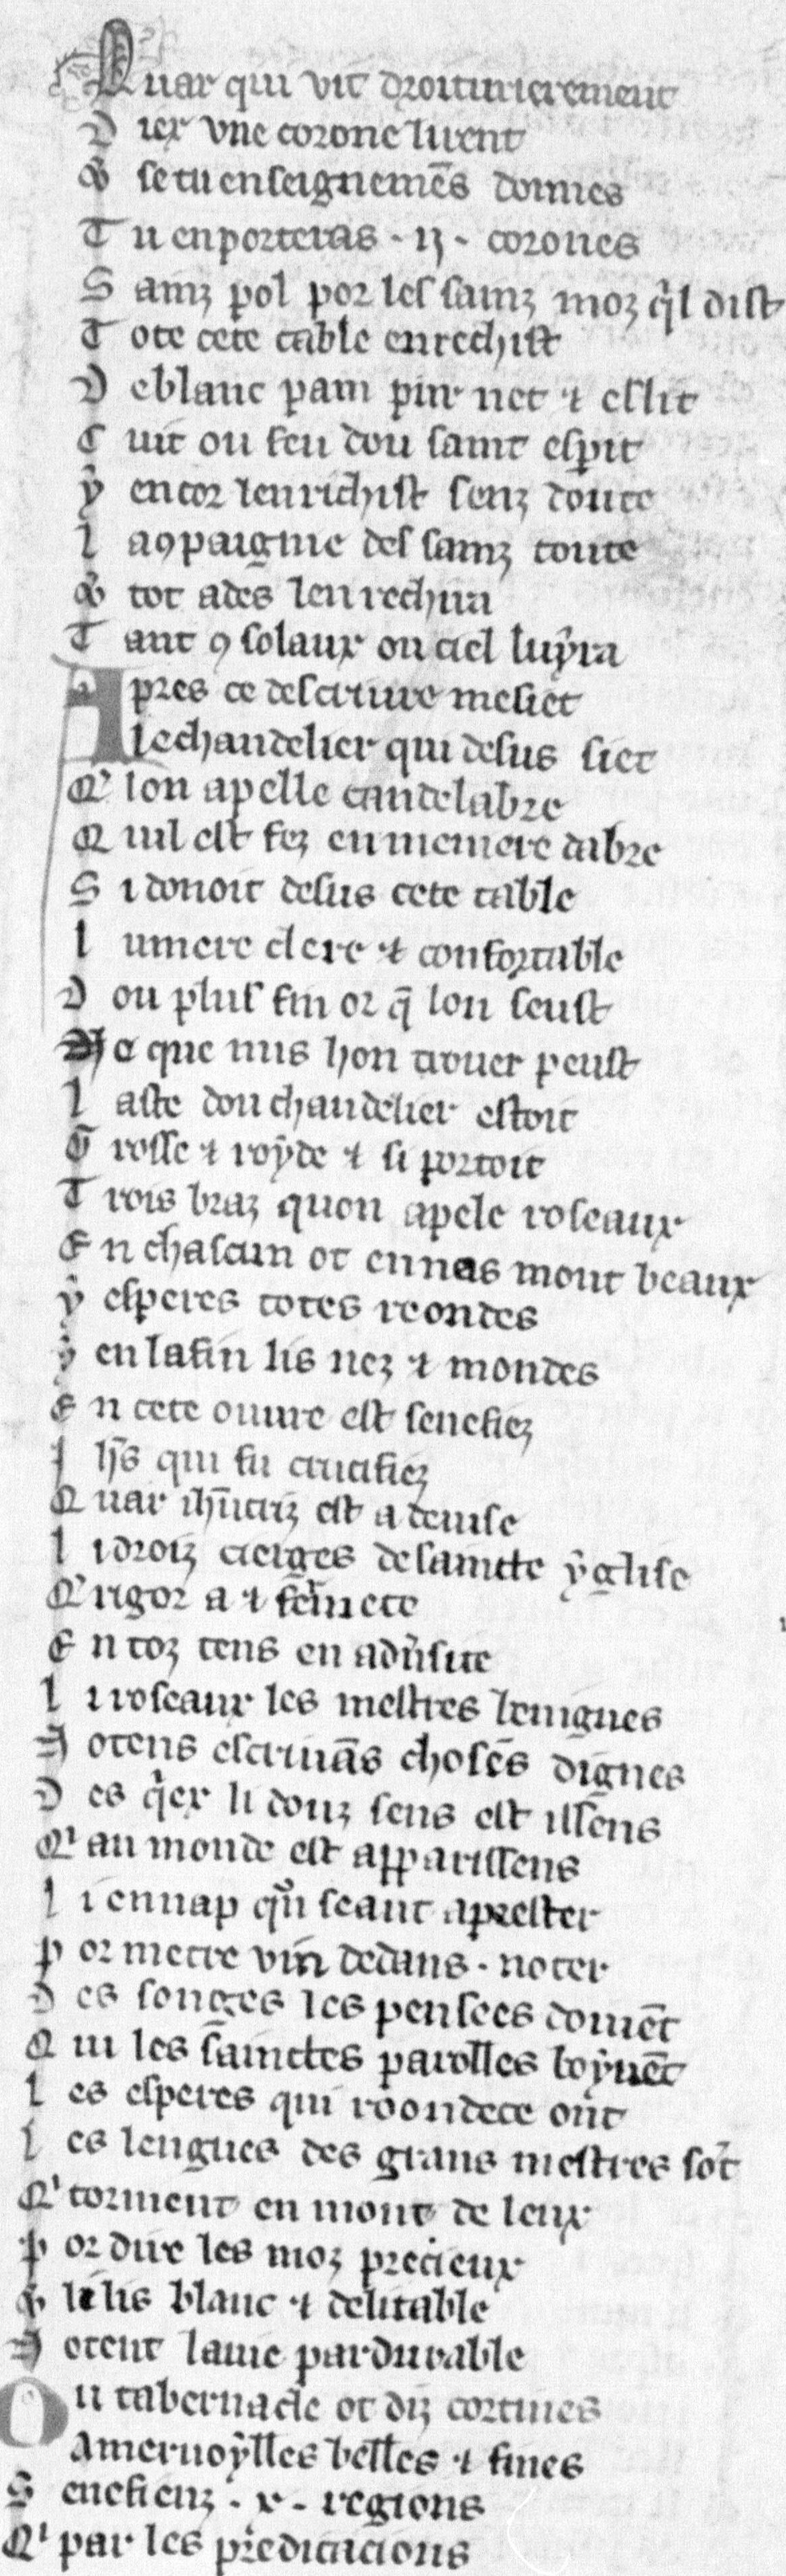 Quar qui vit droiturierement
Diex vne corone li rent
⁊ se tu enseignemēs donnes
Tu en porteras .ij. corones
Sainz pol por les sainz moz q̉l dist
Tote cete table enrechist
De blanc pain pur net ⁊ eslit
Cuit ou feu dou saint esp̄it
ẏ encor lenrichist senz doute
La ꝯpaignie des sainz toute
⁊ tot ades lenrechira
Tant ꝯ solaux ou ciel luẏra
Apres ce descriure me siet
Le chandelier qui desus siet
Q' lon apelle candelabre
Quil est fez en meniere dabre
Si donoit desus cete table
Lumere clere ⁊ confortable
Dou plus fin or q̄ lon seust
Ne que nus hon trouer peust
Laste dou chandelier estoit
Grosse ⁊ roẏde ⁊ si portoit
Trois braz quon apele roseaux
En chascun ot ennas mont beaux
ẏ esperes totes reondes
ẏ en la fin lis nez ⁊ mondes
En cete ouure est senefiez
Ih̄s qui fu crucifiez
Quar ih̄ucriz est a deuise
Li droiz cierges de saincte ẏglise
Q' rigor a ⁊ fer̉mete
En toz tens en adũsite
Li roseaux les mestres lenignes
Notens escriuās choses dignes
Des q̉ex li douz sens est issens
Q' au monde est apparissens
Li ennap qũ seant aprester
Por metre vin dedans . noter
Des songes les pensees doiuēt
Qui les sainctes parolles boẏuēt
Les esperes qui roondece ont
Les lengues des grans mestres sōt
Q' torment en mont de leux
Por dire les moz precieux
⁊ li lis blanc ⁊ delitable
Notent la uie pardurable
Ou tabernacle ot diz cortines
A meruoẏlles belles ⁊ fines
Senefienz . x . regions
Q' par les predicacions